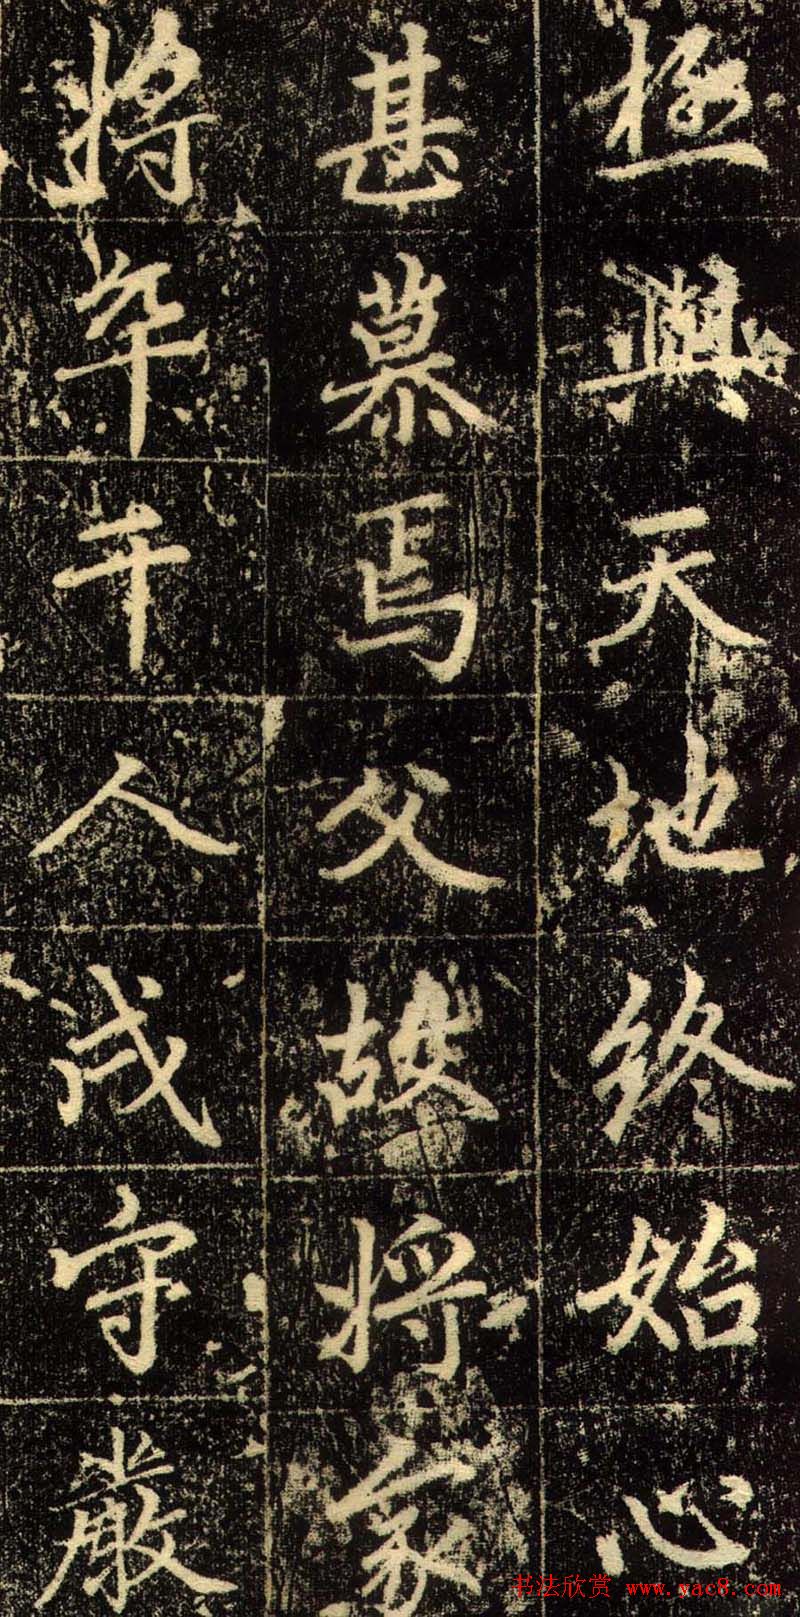 極與天地終始心
甚慕焉父故將家
將卒千人戍守嚴
书法欣赏 www.yac8.com